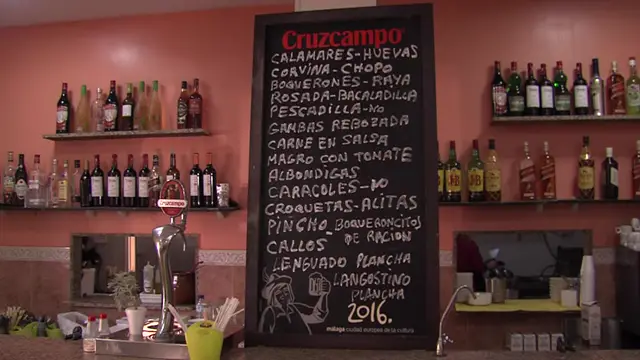 Cruzcampo
CALAMARES-HUEVAS
CORVINA-CHOPO
BOQUERONES-RAYA
ROSADA-BACALADILLA
PESCADILLA-NO
GAMBAS REBOZADA
CARNE EN SALSA
MAGRO CON TOMATE
ALBONDIGAS
CARACOLES-NO
CROQUETAS-ALITAS
PINCHO-BOQUERONCITOS
CALLOS DE RACION
LENGUADO PLANCHA
LANGOSTINO
PLANCHA
2016.
málaga ciudad europea de la cultura
Cruzcampo
J&B